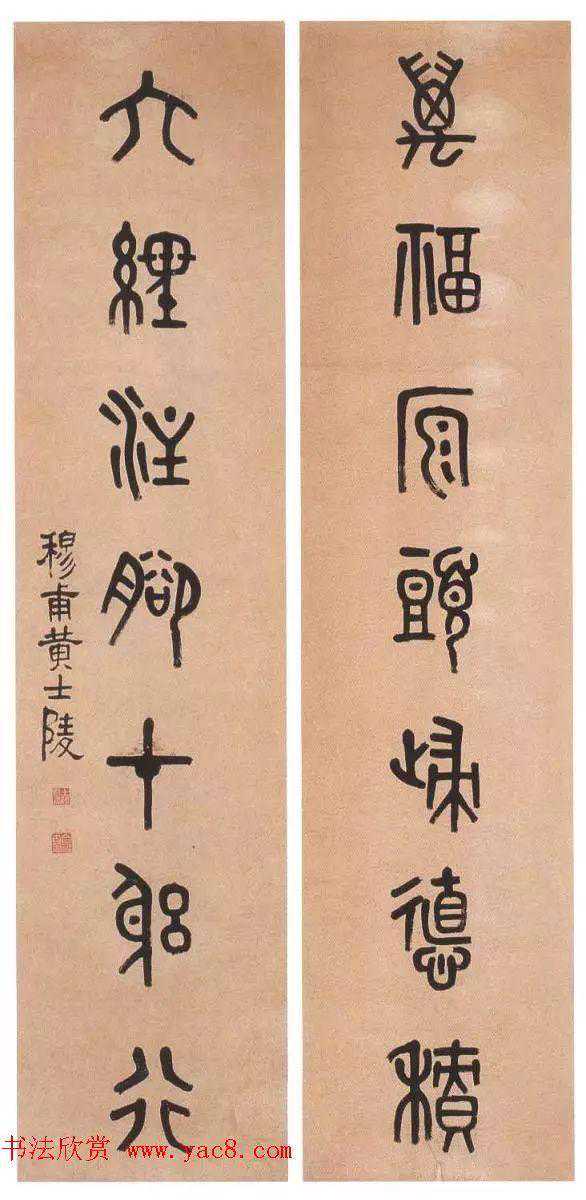 萬福原頭歸德積
六經注腳在躬行
穆甫黃士陵
书法欣赏 www.yac8.com